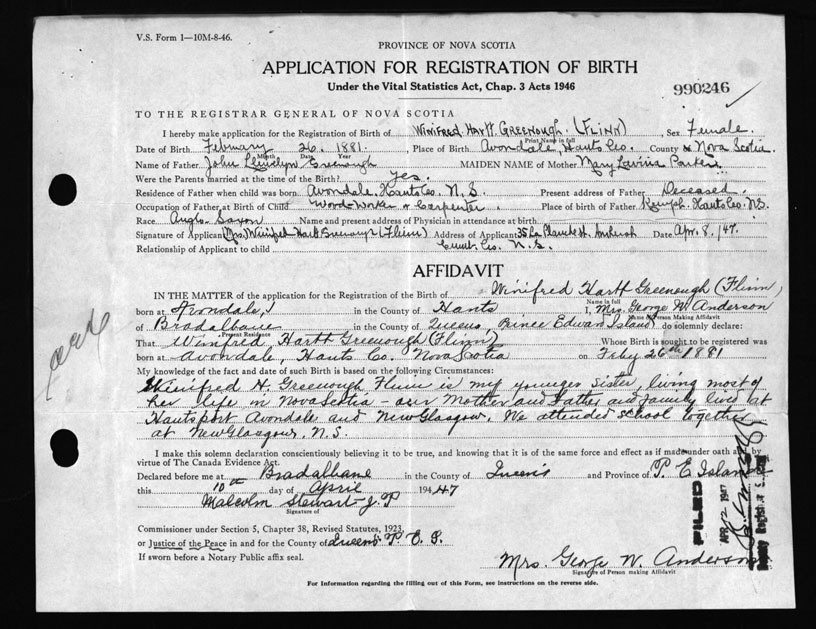 V.S. Form 1—10M-8-46.
PROVINCE OF NOVA SCOTIA
APPLICATION FOR REGISTRATION OF BIRTH
Under the Vital Statistics Act, Chap. 3 Acts 1946
990246
TO THE REGISTRAR GENERAL OF NOVA SCOTIA
I hereby make application for the Registration of Birth of Winifred Hartt Greenough. (Flinn) Sex Female.
Print Name in full
Date of Birth February 26. 1881. Place of Birth Avondale, Hants Co. County Nova Scotia
Month Date Year
Name of Father John Llewelyn Greenough MAIDEN NAME of Mother Mary Lavinia Parker
Were the Parents married at the time of Birth? Yes.
Residence of Father when child was born Avondale, Hants Co. N.S. Present address of Father Deceased.
Occupation of Father at Birth of Child Wood-Worker & Carpenter. Place of birth of Father Kempt. Hants Co. N.S.
Race Anglo-Saxon Name and present address of Physician in attendance at birth
Signature of Applicant (Mrs.) Winifred Hartt Greenough (Flinn) Address of Applicant 35 La Planche St. Amherst Date Apr. 8. /47.
Relationship of Applicant to child Cumb. Co. N.S.
AFFIDAVIT
IN THE MATTER of the application for the Registration of the Birth of Winifred Hartt Greenough (Flinn)
Name in full
born at Avondale, in the County of Hants I, Mrs. George W. Anderson
Name of Person Making Affidavit
of Bradalbane in the County of Queens, Prince Edward Island) do solemnly declare:
Present Residence
That Winifred Hartt Greenough (Flinn) Whose Birth is sought to be registered was
born at Avondale, Hants Co. Nova Scotia on Feby 26th 1881
My knowledge of the fact and date of such Birth is based on the following Circumstances:
Winifred H. Greenough Flinn is my younger sister, living most of
her life in Nova Scotia - our Mother and Father and family lived at
Hantsport Avondale and New Glasgow. We attended school together
at New Glasgow, N.S.
I make this solemn declaration conscientiously believing it to be true, and knowing that it is of the same force and effect as if made under oath and by
virtue of The Canada Evidence Act.
Declared before me at Bradalbane in the County of Queens and Province of P. E. Island
this 10th day of April 1947
Malcolm Stewart J.P
Signature of
Commissioner under Section 5, Chapter 38, Revised Statutes, 1923,
or Justice of the Peace in and for the County of Queens P. E. I.
If sworn before a Notary Public affix seal.
Mrs. George W. Anderson
Signature of Person making Affidavit
For Information regarding the filling out of this Form, see instructions on the reverse side.
FILED
APR 12 1947